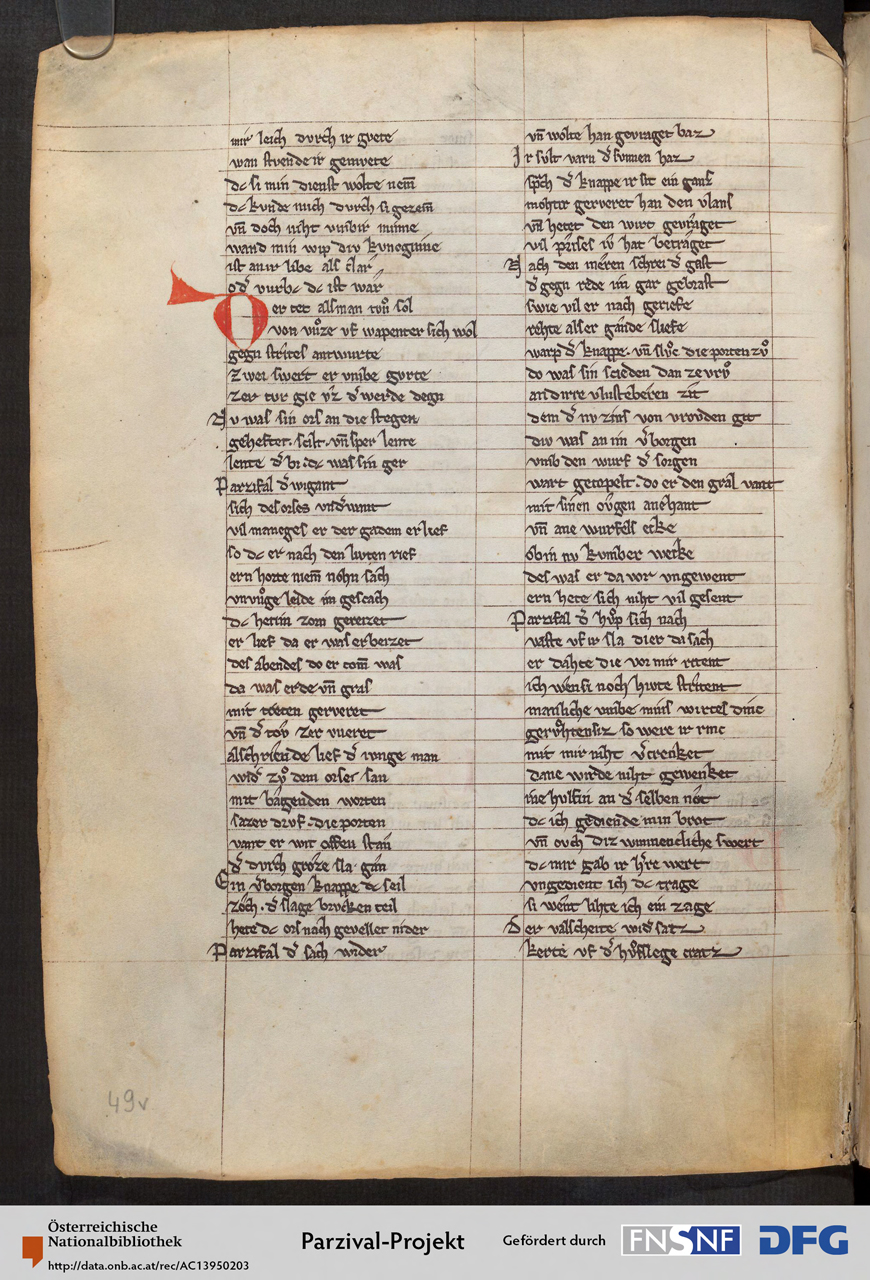 mir leich dvrch ir gvete
wan stvende ir gemvete
dc si min dienst wolte nem̄
dc kvnde mich dvrch si gezem̄
vn̄ doch niht vmbir minne
wand min wip div kvneginne
ist an ir libe als clar
od͛ vurbc dc ist war
Er tet als man tvͦn sol
von vuͦze vf wapenter sich wol
gegn strites antwurte
zwei swert er vmbe gvrte
zer tvr gie vͦz d͛ werde degn
Nv was sin ors an die stegen
geheftet. scilt. vn̄ sper lente
lente d͛ bi. dc was sin ger
Parzifal d͛ wigant
sich des orses vnd͛want
vil maneges er der gadem erlief
so dc er nach den lvten rief
ern horte niem̄ nohn sach
vnvuͦge leide im gescach
dc het in zorn gereizet
er lief da er was erbeizet
des abendes do er com̄ was
da was erde vn̄ gras
mit treten gerveret
vn̄ d͛ tov zer vueret
al schriende lief d͛ ivnge man
wid͛ zvͦ dem orse san
mit bagenden worten
sazer drvf. die porten
vant er wit offen stan
d͛ dvrch groze sla gan
Ein v͛borgen knappe dc seil
zoch. d͛ slage brvcken teil
hete dc ors nach gevellet nider
Parzifal d͛ sach wider
vn̄ wolte han gevraget baz
Ir svlt varn d͛ svnnen haz
sp͛ch d͛ knappe ir sit ein gans
mohtir gerveret han den vlans
vn̄ hetet den wirt gevraget
vil prises iv hat betraget
Nach den meren schrei d͛ gast
d͛ gegn rede im gar gebrast
swie vil er nach geriefe
rehte alser gande sliefe
warp d͛ knappe. vn̄ slvͦc die porten zvͦ
do was sin scieden dan ze vrvͦ
an dirre vlustebæren zit
dem d͛ nv zins von vrovden git
div was an im v͛borgen
vmb den wurf d͛ sorgen
wart getopelt. do er den gral vant
mit sinen ovgen ane hant
vn̄ ane wurfels ecke
ob in nv kvmber wecke
des was er da vor vngewent
ern hete sich niht vil gesent
Parzifal d͛ hvͦp sich nach
vaste vf ir sla dier da sach
er dahte die vor mir ritent
ich wen si noch hivte stritent
manliche vmbe mins wirtes dinc
gervͦhtensiz so were ir rinc
mit mir niht v͛crenket
dane wirde niht gewenket
ine hulfin an d͛ selben not
dc ich gediende min brot
vn̄ ovch diz wunnencliche swert
dc mir gab ir h͛re wert
vngedient ich dc trage
si went lihte ich ein zage
Der valscheite wid͛satz
kerte vf d͛ hvͦfslege cratz
49v
Österreichische
Nationalbibliothek
http://data.onb.ac.at/rec/AC13950203
Parzival-Projekt
Gefördert durch
FNSNF
DFG